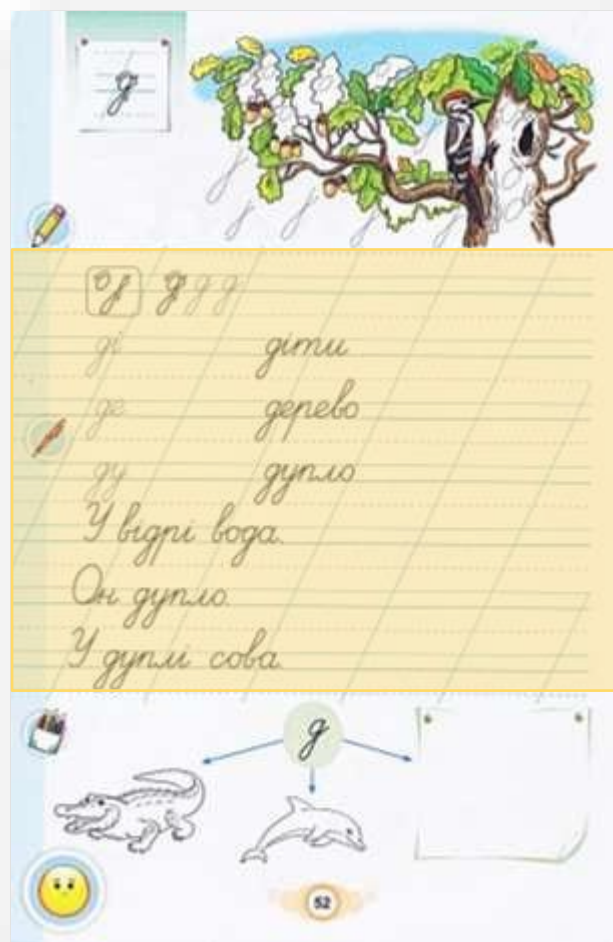 д
д д д д
ді діти
де дерево
ду дупло
У відрі вода.
Он дупло.
У дуплі сова.
д
52